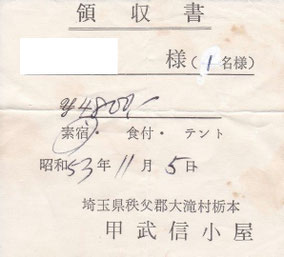 領収書
様(1名様)
¥4800,-
素宿・食付・テント
昭和53年11月5日
埼玉県秩父郡大滝村栃本
甲武信小屋